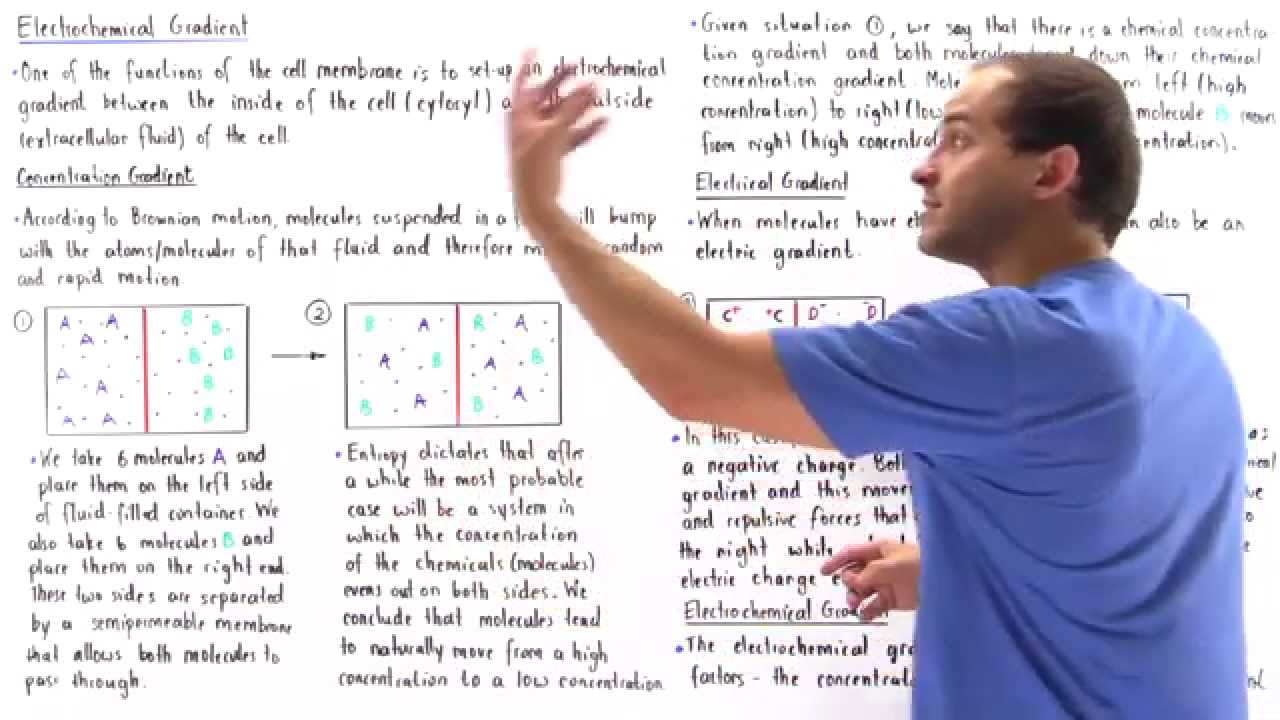 Electrochemical Gradient
• One of the functions of the cell membrane is to set-up an electrochemical
gradient between the inside of the cell (cytosyl) outside
(extracellular fluid) of the cell.
Concentration Gradient
• According to Brownian motion, molecules suspended in a will bump
with the atoms/molecules of that fluid and therefore random
and rapid motion.
1
A A
A
A
A
A A
B
B
B B
B
B
2
B A
A B
B A
B A
A B
A
B
• We take 6 molecules A and
place them on the left side
of fluid-filled container. We
also take 6 molecules B and
place them on the right end.
These two sides are separated
by a semipermeable membrane
that allows both molecules to
pass through.
• Entropy dictates that after
a while the most probable
case will be a system in
which the concentration
of the chemicals (molecules)
evens out on both sides. We
conclude that molecules tend
to naturally move from a high
concentration to a low concentration
• Given situation 1, we say that there is a chemical concentra-
tion gradient and both molecules down their chemical
concentration gradient. left (high
concentration) to right (low molecule B
from right (high
Electrical Gradient
• When molecules have also be an
electric gradient.
C+ +C D- -D
• In this as
a negative charge.
gradient and this
and repulsive forces that
the right while
electric charge
Electrochemical
• The electrochemical
factors - the